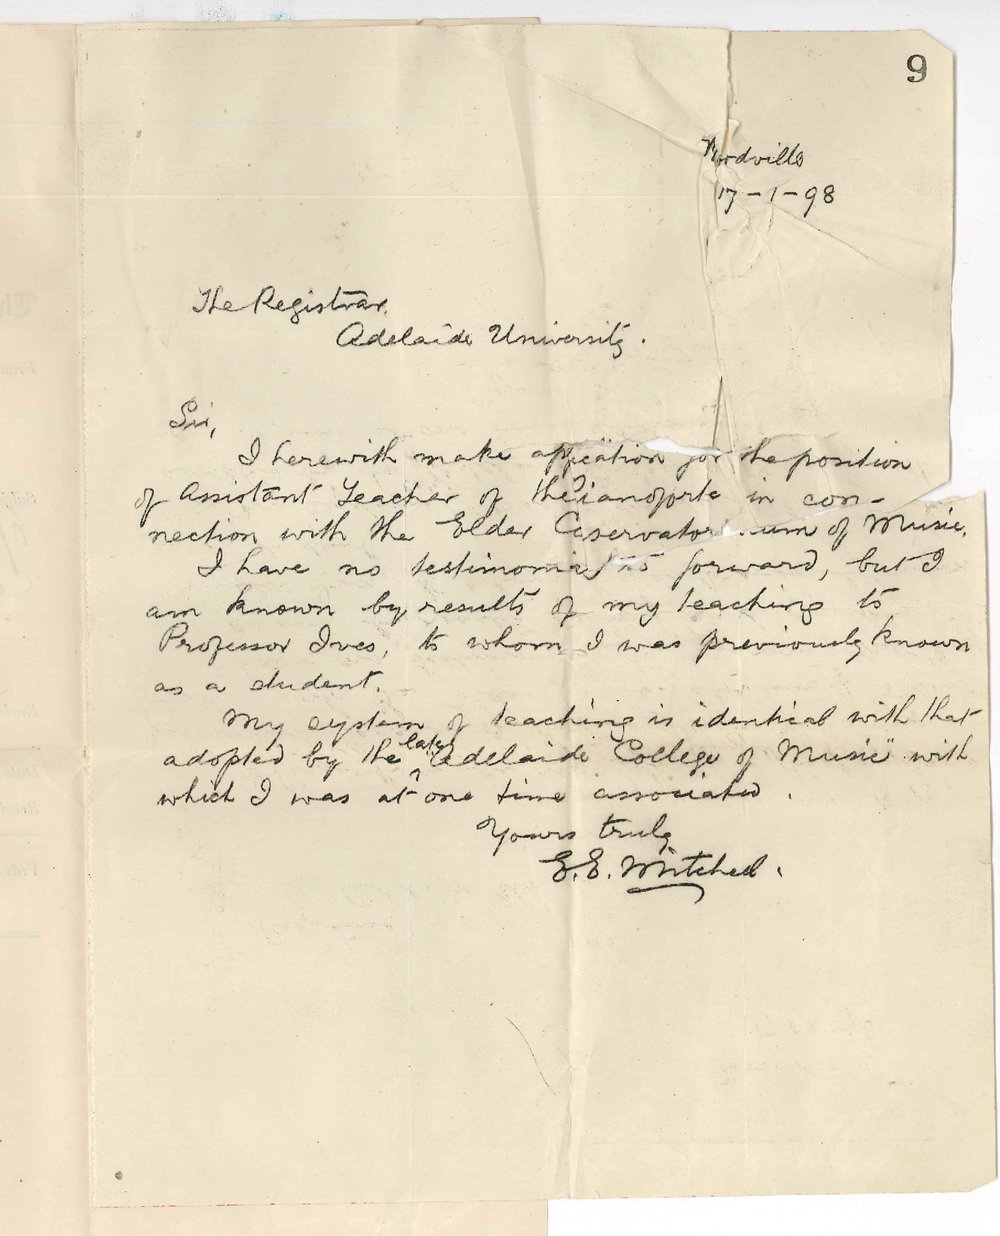 9
Woodville
17-1-98
The Registrar
Adelaide University.
Sir,
I herewith make application for the position
of Assistant Teacher of the Pianoforte in con-
nection with the Elder Conservatorium of Music.
I have no testimonials to forward, but I
am known by results of my teaching to
Professor Ives, to whom I was previously known
as a student.
My system of teaching is identical with that
adopted by the late "Adelaide College of Music" with
which I was at one time associated.
Yours truly
E. E. Mitchell.